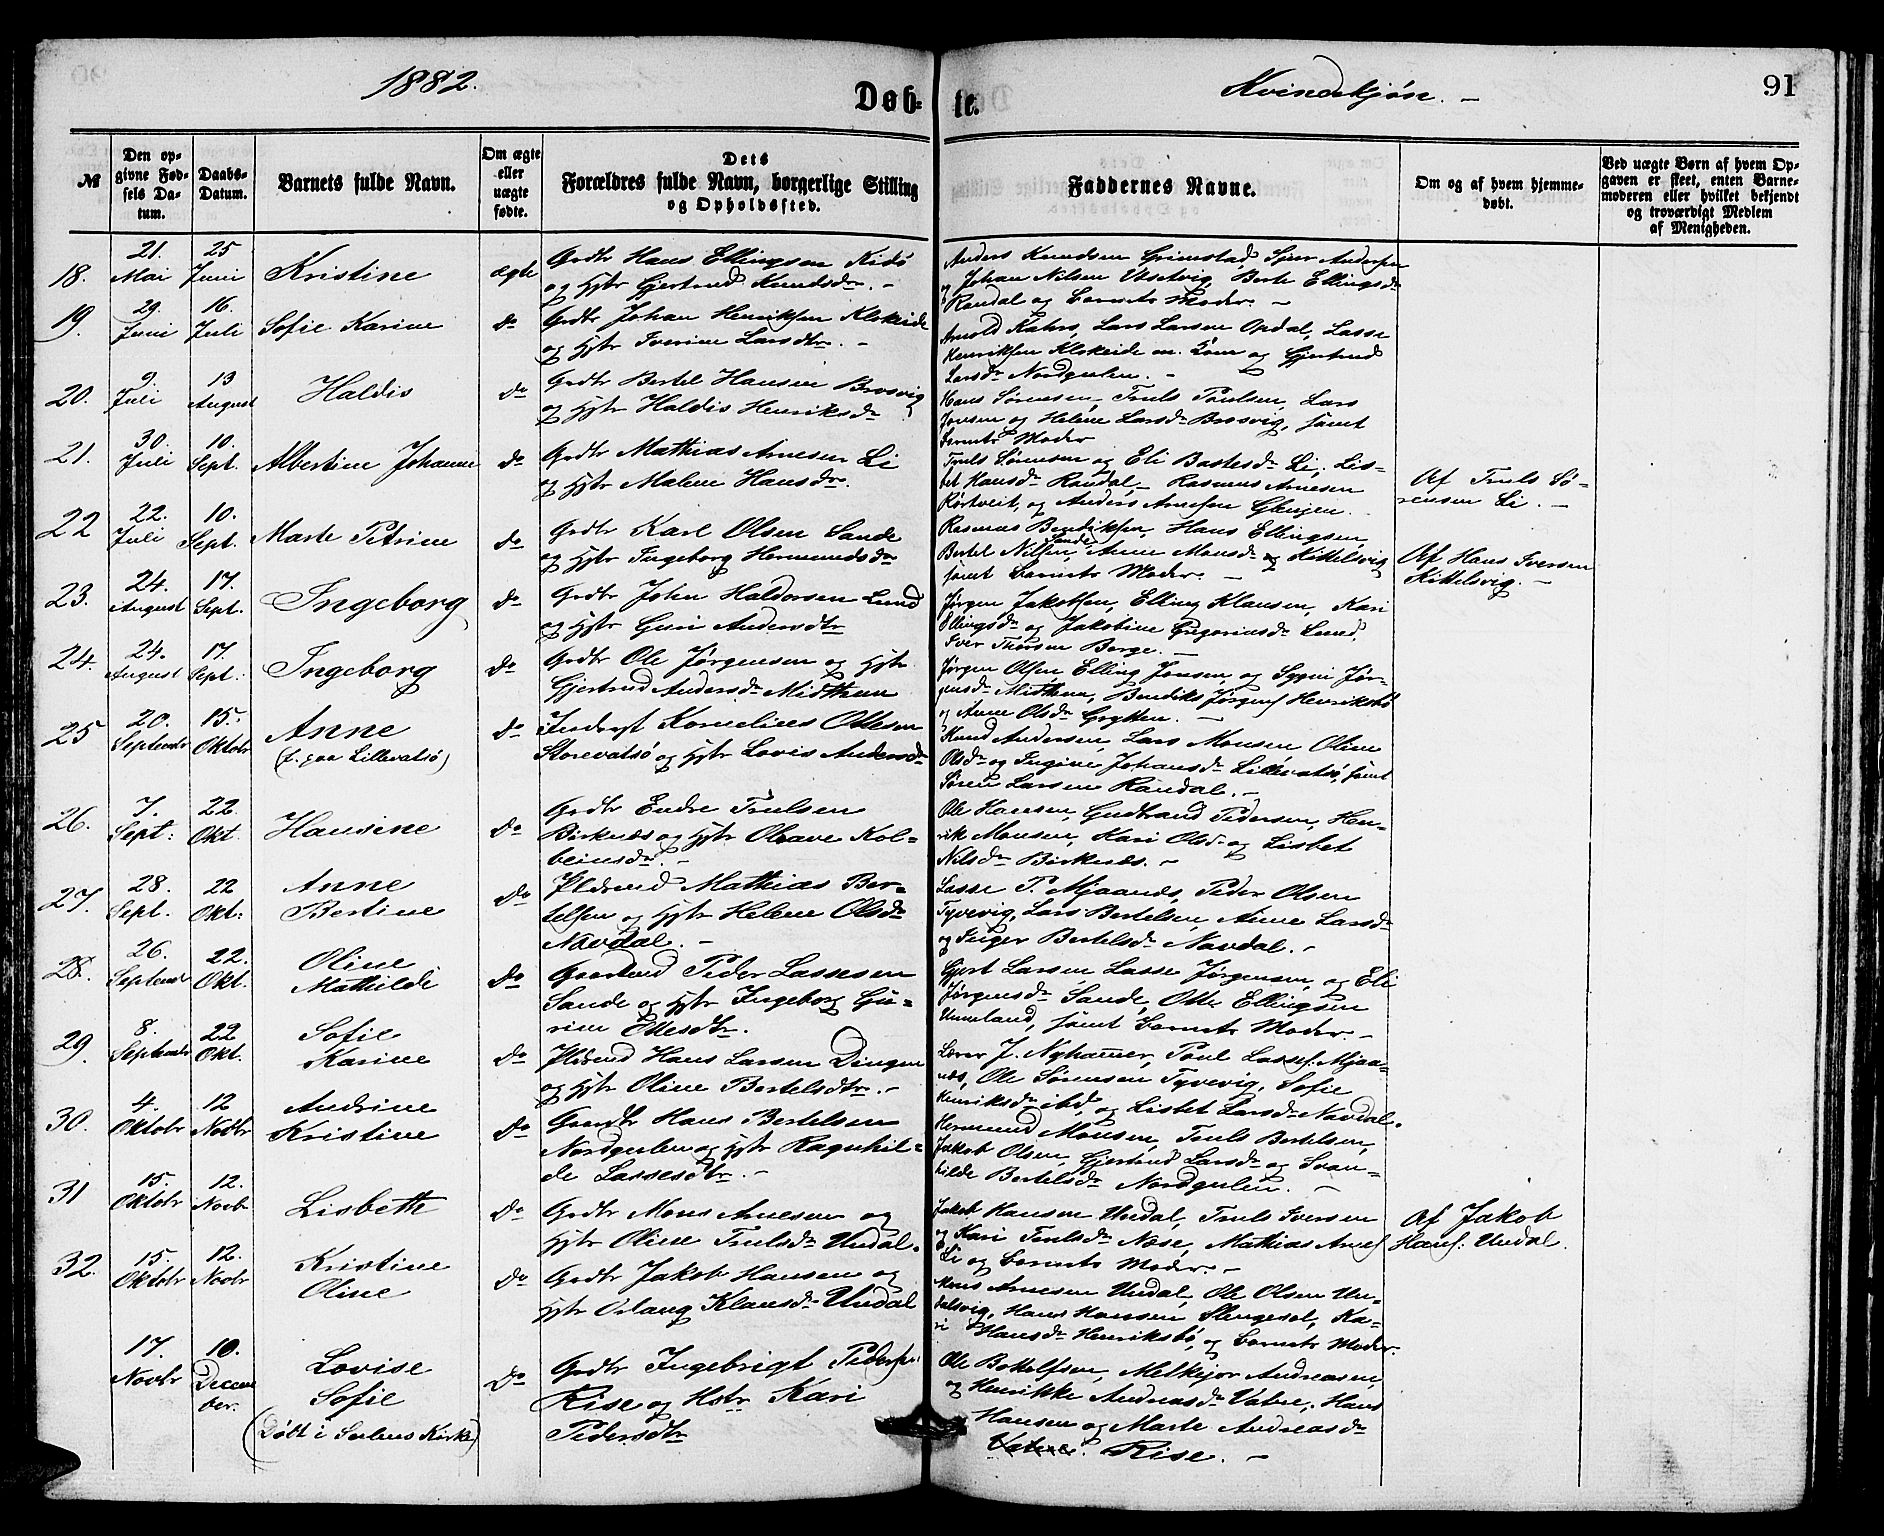 1882.
Døb-
te.
Kvindekjøn. -
91
№
Den op-
givne Fød-
sels Da-
tum.
Daabs-
Datum.
Barnets fulde Navn.
Om ægte
eller
uægte
fødte.
Dets
Forældres fulde Navn, borgerlige Stilling
og Opholdssted.
Faddernes Navne.
Om og af hvem hjemme-
døbt.
Ved uægte Børn af hvem Op-
gaven er skeet, enten Barne-
moderen eller hvilket bekjendt
og troværdigt Medlem
af Menigheden.
18.
21.
Mai
25
Juni
Kristine
ægte
Grdbr Hans Ellingsen Kidø
og Hstr Gjertrud Knudsdr. -
Anders Knudsen Grimstad,
og Johan Nilsen Berte Ellingsdr
Randal og Barnets Moder. -
19.
29.
Juni
16.
Juli
Sofie Karine
do
Grdbr Johan Henriksen Klokeide
og Hstr Iverine Larsdtr. -
Arnold Kahrs, Lars Larsen Opdal, Lasse
Henriksen Klokeide og Gjertrud
Larsdr Nordgulen. -
20.
9.
Juli
13
August
Haldis
do
Grdbr Bertel Hansen Brosvig
og Hstr Haldis Henriksdr
Hans Sørensen, Truls Paulsen, Lars
Jensen og Helene Larsdr Brosvig, samt
Barnets Moder
21.
30.
Juli
10.
Sept.
Albertine Johanne
do
Grdbr Mathias Arnesen Li
og Hstr Malene Hansdr.
Truls Sørensen og Eli Li, Lis-
bet Hansdr Randal - Rasmus Arnesen
Kortveit, og Anders Arnesen
Af Truls Sø-
rensen Li. -
22
22.
Juli
10.
Sept.
Marte Petrine
do
Grdbr Karl Olsen Sande
og Hstr Ingeborg Hermundsdr
Rasmus Bendiksen, Hans Ellingsen,
Bertel Nilsen Sande, Anne Monsdr Kittelsvig
samt Barnets Moder. -
Af Hans Iversen
Kittelsvig. -
23.
24.
August
17.
Sept.
Ingeborg
do
Grdbr John Haldorsen Lund
og Hstr Guri Andersdtr
Jørgen Jakobsen, Elling Klausen, Kari
Ellingsdr og Jakobine Gregoriusdr Lund,
Iver Thorsen Berge. -
24.
24.
August
17.
Sept.
Ingeborg
do
Grdbr Ole Jørgensen og Hstr
Gjertrud Andersdr Midtbøen
Jørgen Olsen, Elling Jensen, og Sygni Jør-
gensdr Midtbøen, Bendiks Jørgens Henriksbø
og Anne Olsdr Grytten. -
25
20.
September
15.
Oktobr
Anne
(f. paa Lillevatsø)
do
Inderst Kornelius Ottesen
Storevatsø og Hstr Lovis Andersdr
Knud Andersen, Lars Monsen, Oline
Olsdr og Ingine Johansdr Lillevatsø, samt
Søren Larsen Randal. -
26.
7.
Sept:
22.
Okt.
Hansine
do
Grdbr Endre Trulsen
Birknæs og Hstr Olave Kol-
beinsdr. -
Ole Hansen, Gudbrand Pedersen, Hen-
rik Monsen, Kari Olsdr og Lisbet
Nilsdr Birknæs. -
27.
28.
Sept.
22
Okt:
Anne
Bertine
do
Pldsmd Mathias Ber-
telsen og Hstr Helene Olsdr
Navdal. -
Lasse P. Mjaanæs, Peder Olsen
Tyvevig, Lars Bertelsen, Anne Larsdr
og Inger Bertelsdr Navdal. -
28.
26.
Septembr
22.
Okt.
Oline
Mathilde
do
Gaardmd Peder Lassesen
Sande og Hstr Ingeborg Gu-
rine Ottesdtr.
Gjert Larsen, Lasse Jørgensen, og Eli
Jørgensdr Sande, Otte Ellingsen
Unneland, samt Barnets Moder. -
29
8.
September
22
Okt.
Sofie
Karine
do
Pldsmd Hans Larsen Dingen
og Hstr Oline Bertelsdtr. -
Lærer J. Nyhamer, Paul Lasses. Mjaa-
næs, Ole Sørensen Tyvevig, Sofie
Henriksdr ibd, og Lisbet Larsdr Navdal.
30.
4.
Oktobr
12
Novbr
Andrine
Kristine
do
Gaardbr Hans Bertelsen
Nordgulen og Hstr Ragnhil-
de Lassesdtr. -
Hermund Monsen, Truls Bertelsen,
Jakob Olsen, Gjertrud Larsdr og Svan-
hilde Bertelsdr Nordgulen. -
31
15.
Oktobr
12.
Novbr
Lisbeth
do
Grdbr Mons Arnesen og
Hstr Oline Trulsdr Undal.
Jakob Hansen Undal, Truls Iversen
og Kari Trulsdr Næse, Mathias Arnes.
Li og Barnets Moder. -
Af Jakob
Hans: Undal.
32.
15.
Oktobr
12.
Novbr
Kristine
Oline
do
Grdbr Jakob Hansen og
Hstr Orlaug Klausdr Undal
Mons Arnesen Undal, Ole Olsen Un-
dalsvig, Hans Hansen Slengesol, Ka-
ri Hansdr Henriksbø, og Barnets Moder.
17.
Novbr
10.
Decem-
ber.
Lovise
Sofie
(Døbt i Gulens Kirke)
do
Grdbr Ingebrigt Peders.
Rise og Hstr Kari
Pedersdtr
Ole Bottolfsen, Melkjor Andreasen,
og Henrikke Andreasdr Vatne, Hans
Hansen og Marte Andreasdr
Vatne. Rise. -